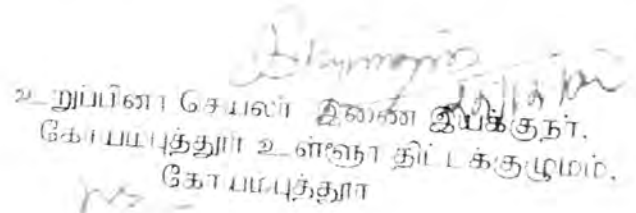 உறுப்பினர் செயலர் இணை இயக்குநர்,
கோயம்புத்தூர் உள்ளூர் திட்டக்குழுமம்,
கோயம்புத்தூர்